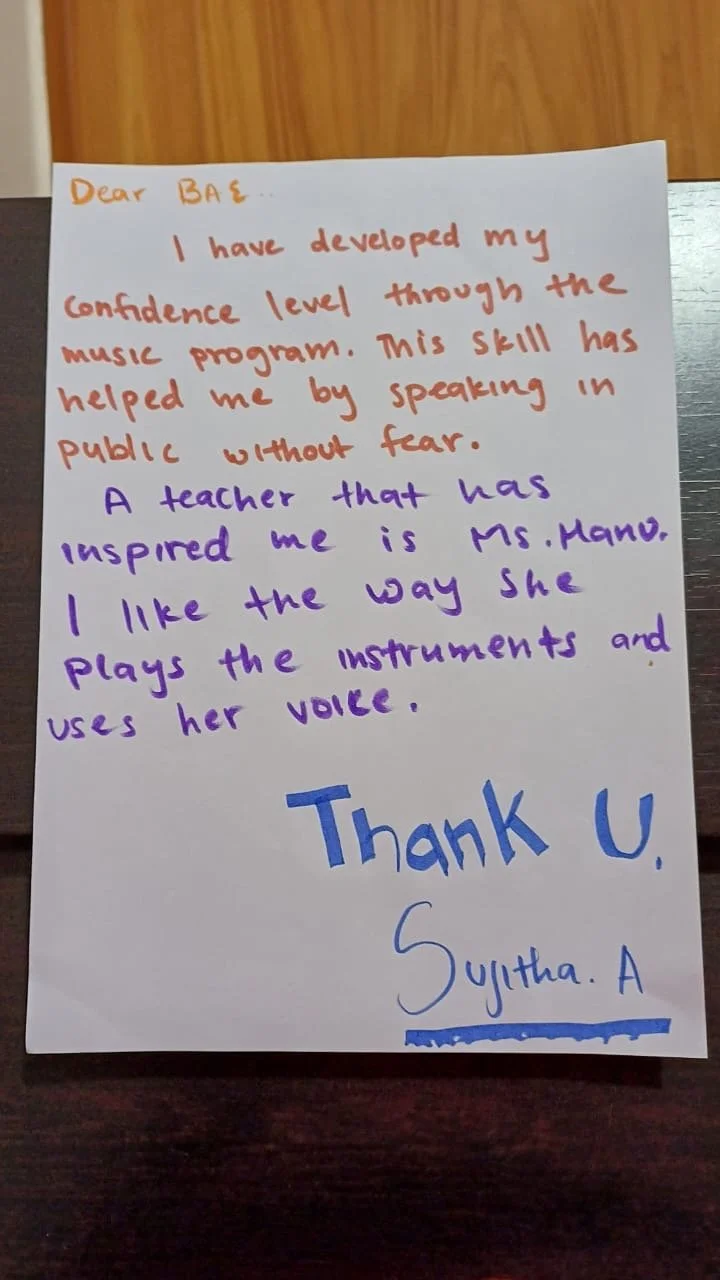 Dear BAE..
I have developed my
confidence level through the
music program. This skill has
helped me by speaking in
public without fear.
A teacher that has
inspired me is Ms. Manu.
I like the way she
plays the instruments and
uses her voice.
Thank U.
Sujitha. A